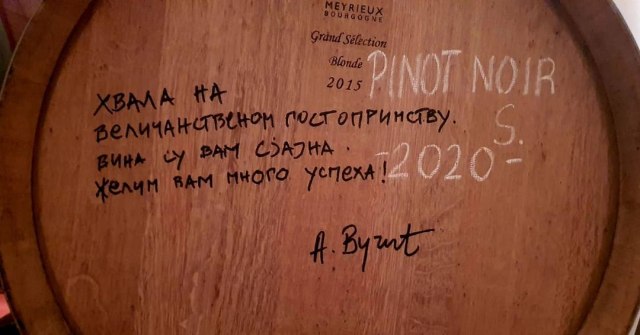 MEYRIEUX
BOURGOGNE
Grand Sélection
Blonde
2015
PINOT NOIR
S.
-2020-
ХВАЛА НА
ВЕЛИЧАНСТВЕНОМ ГОСТОПРИМСТВУ.
ВИНА СУ ВАМ СЈАЈНА.
ЖЕЛИМ ВАМ МНОГО УСПЕХА!
А.